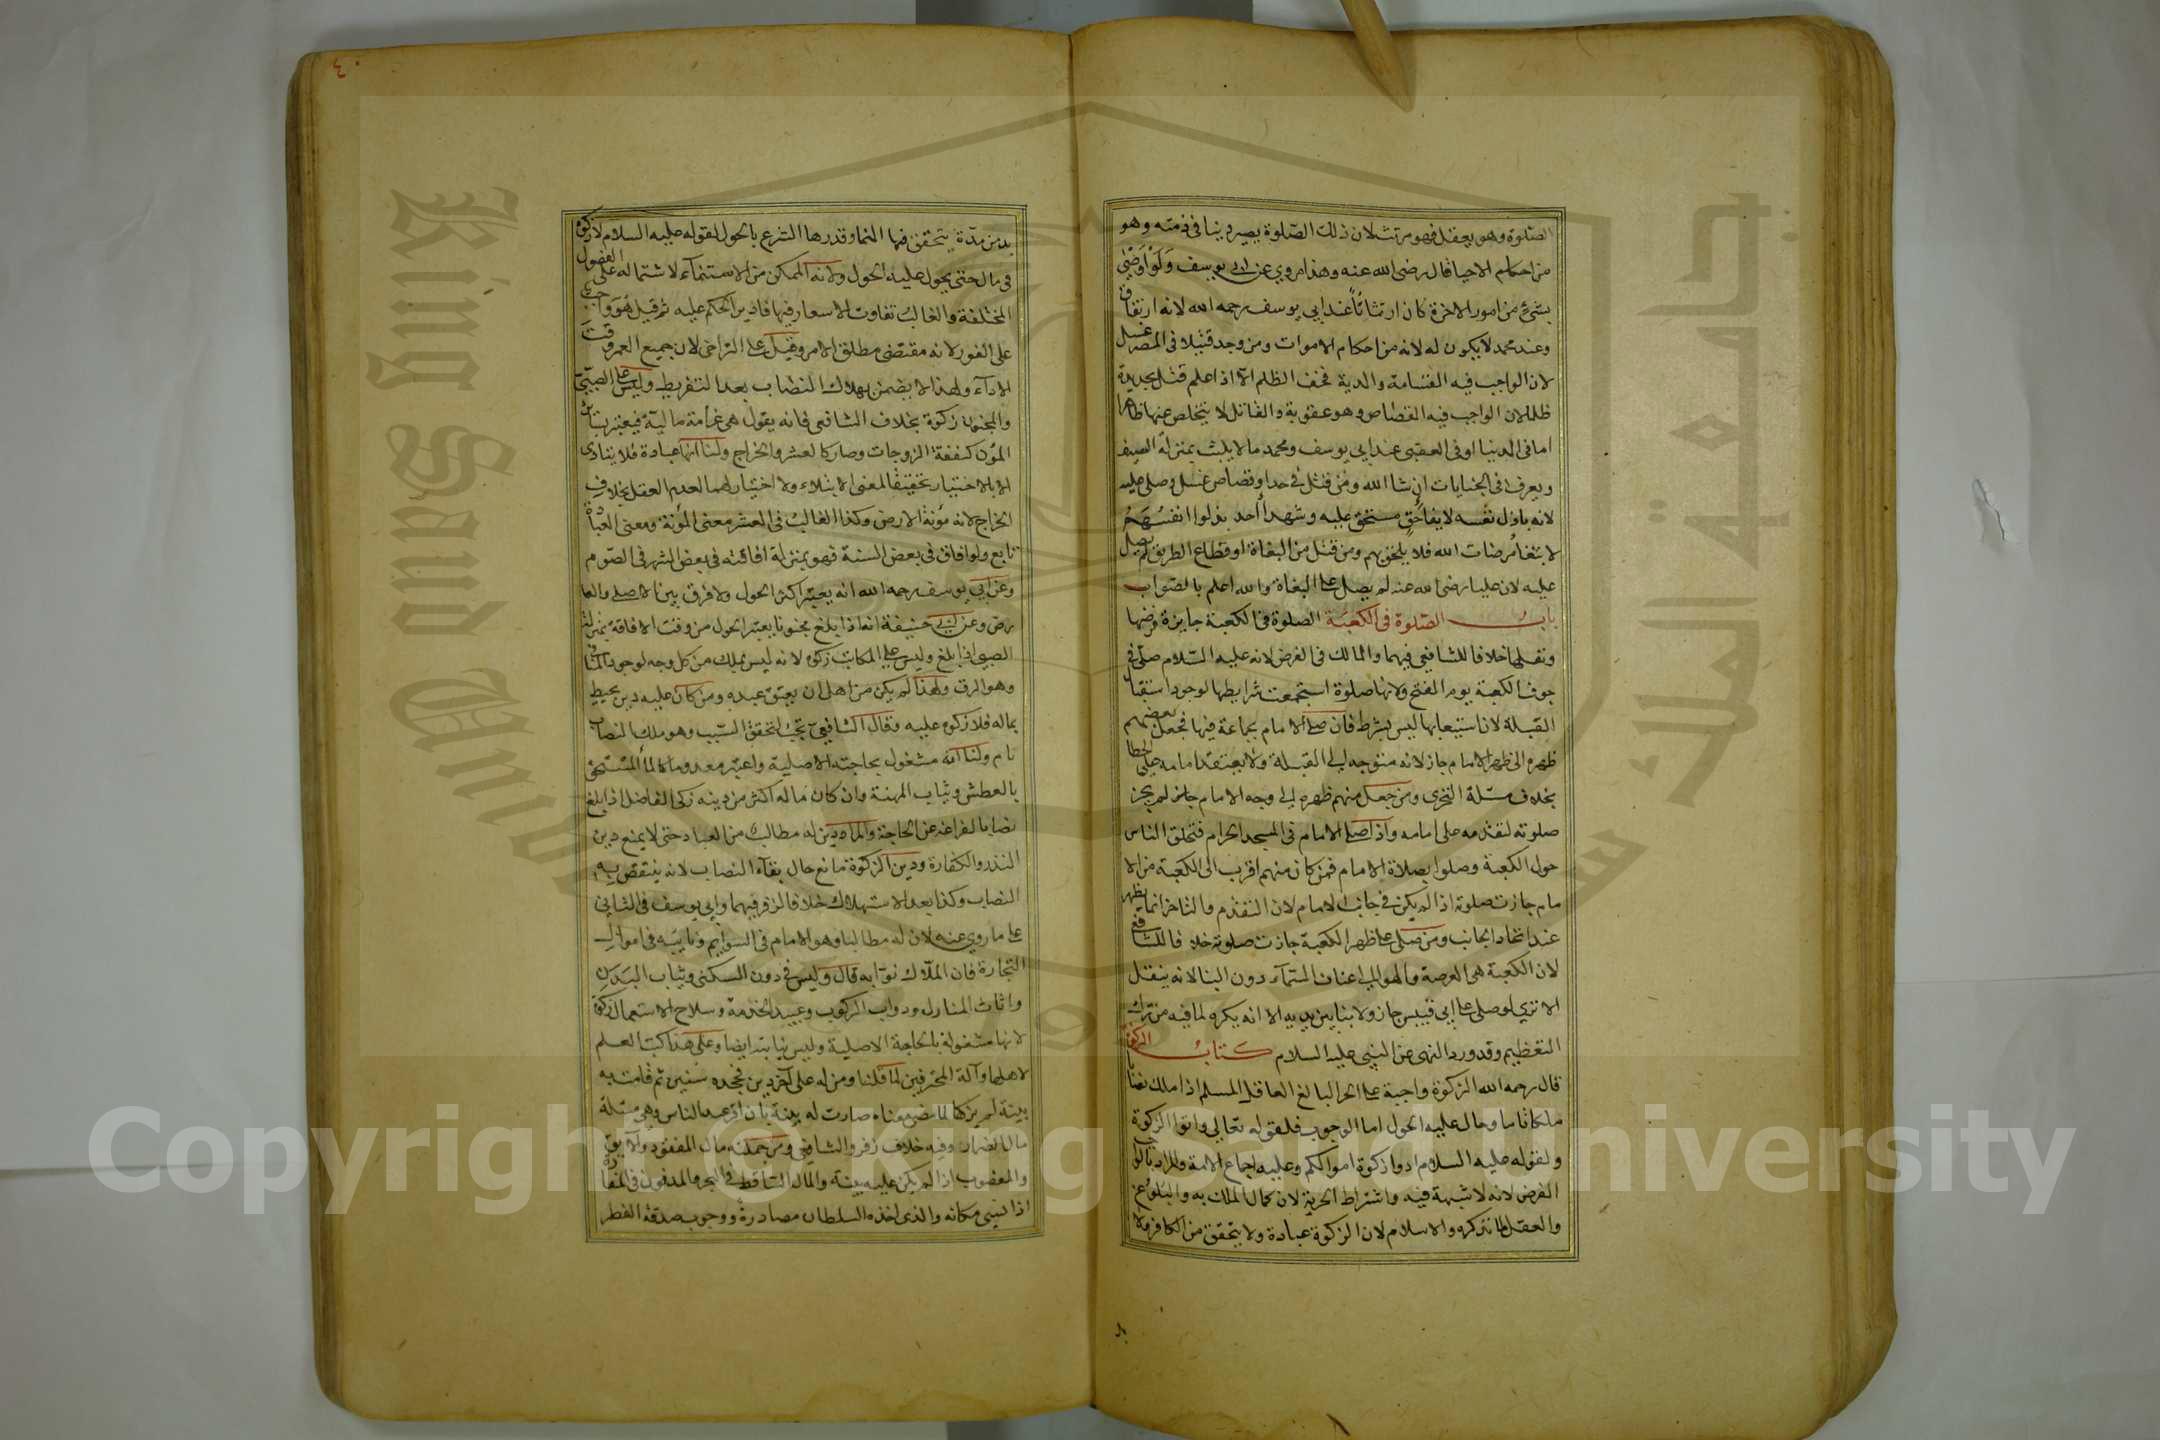 الصّلوة وهو يعقل فهو مرتث لان ذلك الصّلوة يصير دينا في ذمته وهو
من احكام الاحيا قال رضى الله عنه وهذا مروي عن ابى يوسف وَلَوْ اَوْصٰى
بشئ من امور الاخرة كان ارتثاثاً عند ابي يوسف رحمه الله لانه ارتفاق
وعند محمد لا يكون له لانه من احكام الاموات ومن وجد قتيلا فى المصر غسل
لان الواجب فيه القسامة والدية فخف الظلم الا اذا اعلم قتل بحديدة
ظلما لان الواجب فيه القصاص وهو عقوبة والقاتل لا يتخلص عنها ظاهرا
اما فى الدنيا او فى العقبى عند ابي يوسف ومحمد ما لا يلبث بمنزلة السيف
ويعرف فى الجنايات ان شا الله ومن قتل في حد او قصاص غسل وصلى عليه
لانه باذل نفسه لايفاء حق مستحق عليه وشهدا أحد بذلوا انفسهم
لابتغا مرضات الله فلا يلحق بهم ومن قتل من البغاة او قطاع الطريق لم يصل
عليه لان عليا رضى الله عنه لم يصل على البغاة والله اعلم بالصّواب
باب الصّلوة فى الكعبة الصلوة فى الكعبة جايزة فرضها
ونفلها خلافا للشافعي فيهما والمالك فى الفرض لانه عليه السّلام صلّى فى
جوف الكعبة يوم الفتح ولانها صلوة استجمعت شرايطها لوجود استقبال
القبلة لان استيعابها ليس بشرط فان صلى الامام بجماعة فيها فجعل بعضهم
ظهره الى ظهر الامام جاز لانه متوجه الى القبلة ولا يعتقد امامه على الخطا
بخلاف مسئلة التحرى ومن جعل منهم ظهره الى وجه الامام جاز لم يجز
صلوته لتقدمه على امامه واذا صلى الامام فى المسجد الحرام فتحلق الناس
حول الكعبة وصلوا بصلاة الامام فمن كان منهم اقرب الى الكعبة من الا
مام جازت صلوته اذا لم يكن في جانب الامام لان التقدم والتاخر انما يظهر
عند اتحاد الجانب ومن صلى على ظهر الكعبة جازت صلوته خلافا للشافعي
لان الكعبة هى العرصة والهوا الى اعنان السّمآء دون البنا لانه ينقل
الا تري لو صلى على ابي قبيس جاز ولا بنا بين يديه الا انه يكره لما فيه من ترك
التعظيم وقد ورد النهى عن النبى عليه السلام كتاب الزكوة
قال رحمه الله الزكوة واجبة على الحر البالغ العاقل المسلم اذا ملك نصابا
ملكا تاما وحال عليه الحول اما الوجوب فلقوله تعالي واتوا الزكوة
ولقوله عليه السلام ادوا زكوة اموالكم وعليه اجماع الامة والمراد بالواجب
الفرض لانه لا شبهة فيه واشتراط الحرية لان كمال الملك به والبلوغ
والعقل لما نذكره والاسلام لان الزكوة عبادة ولا يتحقق من الكافر ولا
بد من مدّة يتحقق فيها النما وقدرها الشرع بالحول لقوله عليه السلام لا زكوة
فى مال حتى يحول عليه الحول ولانه الممكن من الاستنماء لاشتماله على الفصول
المختلفة والغالب تفاوت الاسعار فيها فادير الحكم عليه ثم قيل هو واجب
على الفور لانه مقتضى مطلق الامر وقيل على التراخى لان جميع العمر وقت
الادآء ولهذا لا يضمن بهلاك النصاب بعد التفريط وليس على الصبيّ
والمجنون زكوة بخلاف الشافعى فانه يقول هى غرامة مالية فيعتبر بساير
المؤن كنفقة الزوجات وصار كالعشر والخراج ولنا انها عبادة فلا يتادى
الا بالاختيار تحقيقا لمعنى الابتلاء ولا اختيار لهما لعدم العقل بخلاف
الخراج لانه مؤنة الارض وكذا الغالب فى العشر معنى المؤنة ومعنى العبادة
تابع ولو افاق فى بعض السنة فهو بمنزلة افاقته فى بعض الشهر فى الصّوم
وعن ابي يوسف رحمه الله انه يعتبر اكثر الحول ولا فرق بين الاصلى والعا
رض وعن ابي حنيفة انه اذا بلغ مجنونا يعتبر الحول من وقت الافاقة بمنزلة
الصبى اذا بلغ وليس على المكاتب زكوة لانه ليس بملك من كل وجه لوجود المنافى
وهو الرق ولهذا لم يكن من اهل ان يعتق عبده ومن كان عليه دين يحيط
بماله فلا زكوة عليه وقال الشافعي تجب لتحقق السّبب وهو ملك النصاب
نام ولنا انه مشغول بحاجته الاصلية واعتبر معدوما كالمآ المستحق
بالعطش وثياب المهنة وان كان ماله اكثر من دينه زكى الفاضل اذا بلغ
نصابا لفراغه عن الحاجة والمراد دين له مطالب من العباد حتى لا يمنع دين
النذر والكفارة ودين الزكوة مانع حال بقآء النصاب لانه ينتقص به
النصاب وكذا بعد الاستهلاك خلافا لزفر فيهما وابي يوسف فى الثانى
على ما روي عنه لان له مطالبا وهو الامام فى السوايم ونايبه فى اموال
التجارة فان الملاك نوّابه قال وليس في دون السكنى وثياب البدن
واثاث المنازل ودواب الركوب وعبيد الخدمة وسلاح الاستعمال زكوة
لانها مشغولة بالحاجة الاصلية وليس بنا بتد ايضا وعلى هذا كتب العلم
لاهلها وآلة المحترفين لما قلنا ومن له على آخر دين فجحده سنين ثم قامت به
بينة لم يزكها لما مضى معناه صارت له بينة بان اقر عند الناس وهى مسئلة
مال الضمان وفيه خلاف زفر والشافعي ومن جملته مال المفقود والآبق
والمغصوب اذا لم يكن عليه بينة والمال الساقط في البحر والمدفون فى المفازة
اذا نسى مكانه والذى اخذه السلطان مصادرة ووجوب صدقة الفطر
King Saud University
جامعة الملك سعود
Copyright © King Saud University